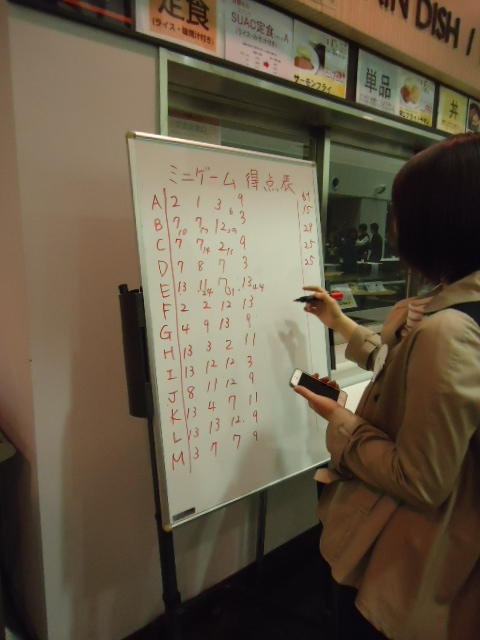 定食
(ライス・味噌汁付き)
SUAC定食...A
サーモンフライ
単品
丼
DISH
ミニゲーム 得点表
A 2 1 3 9 15
B 7 7 12 3 29
C 7 7 2 9 25
D 7 8 7 3 25
E 13 11 7 13
F 2 2 12 13
G 4 9 13 9
H 13 3 2 11
I 13 12 12 3
J 8 11 12 9
K 13 4 7 11
L 13 13 12 9
M 3 7 7 9